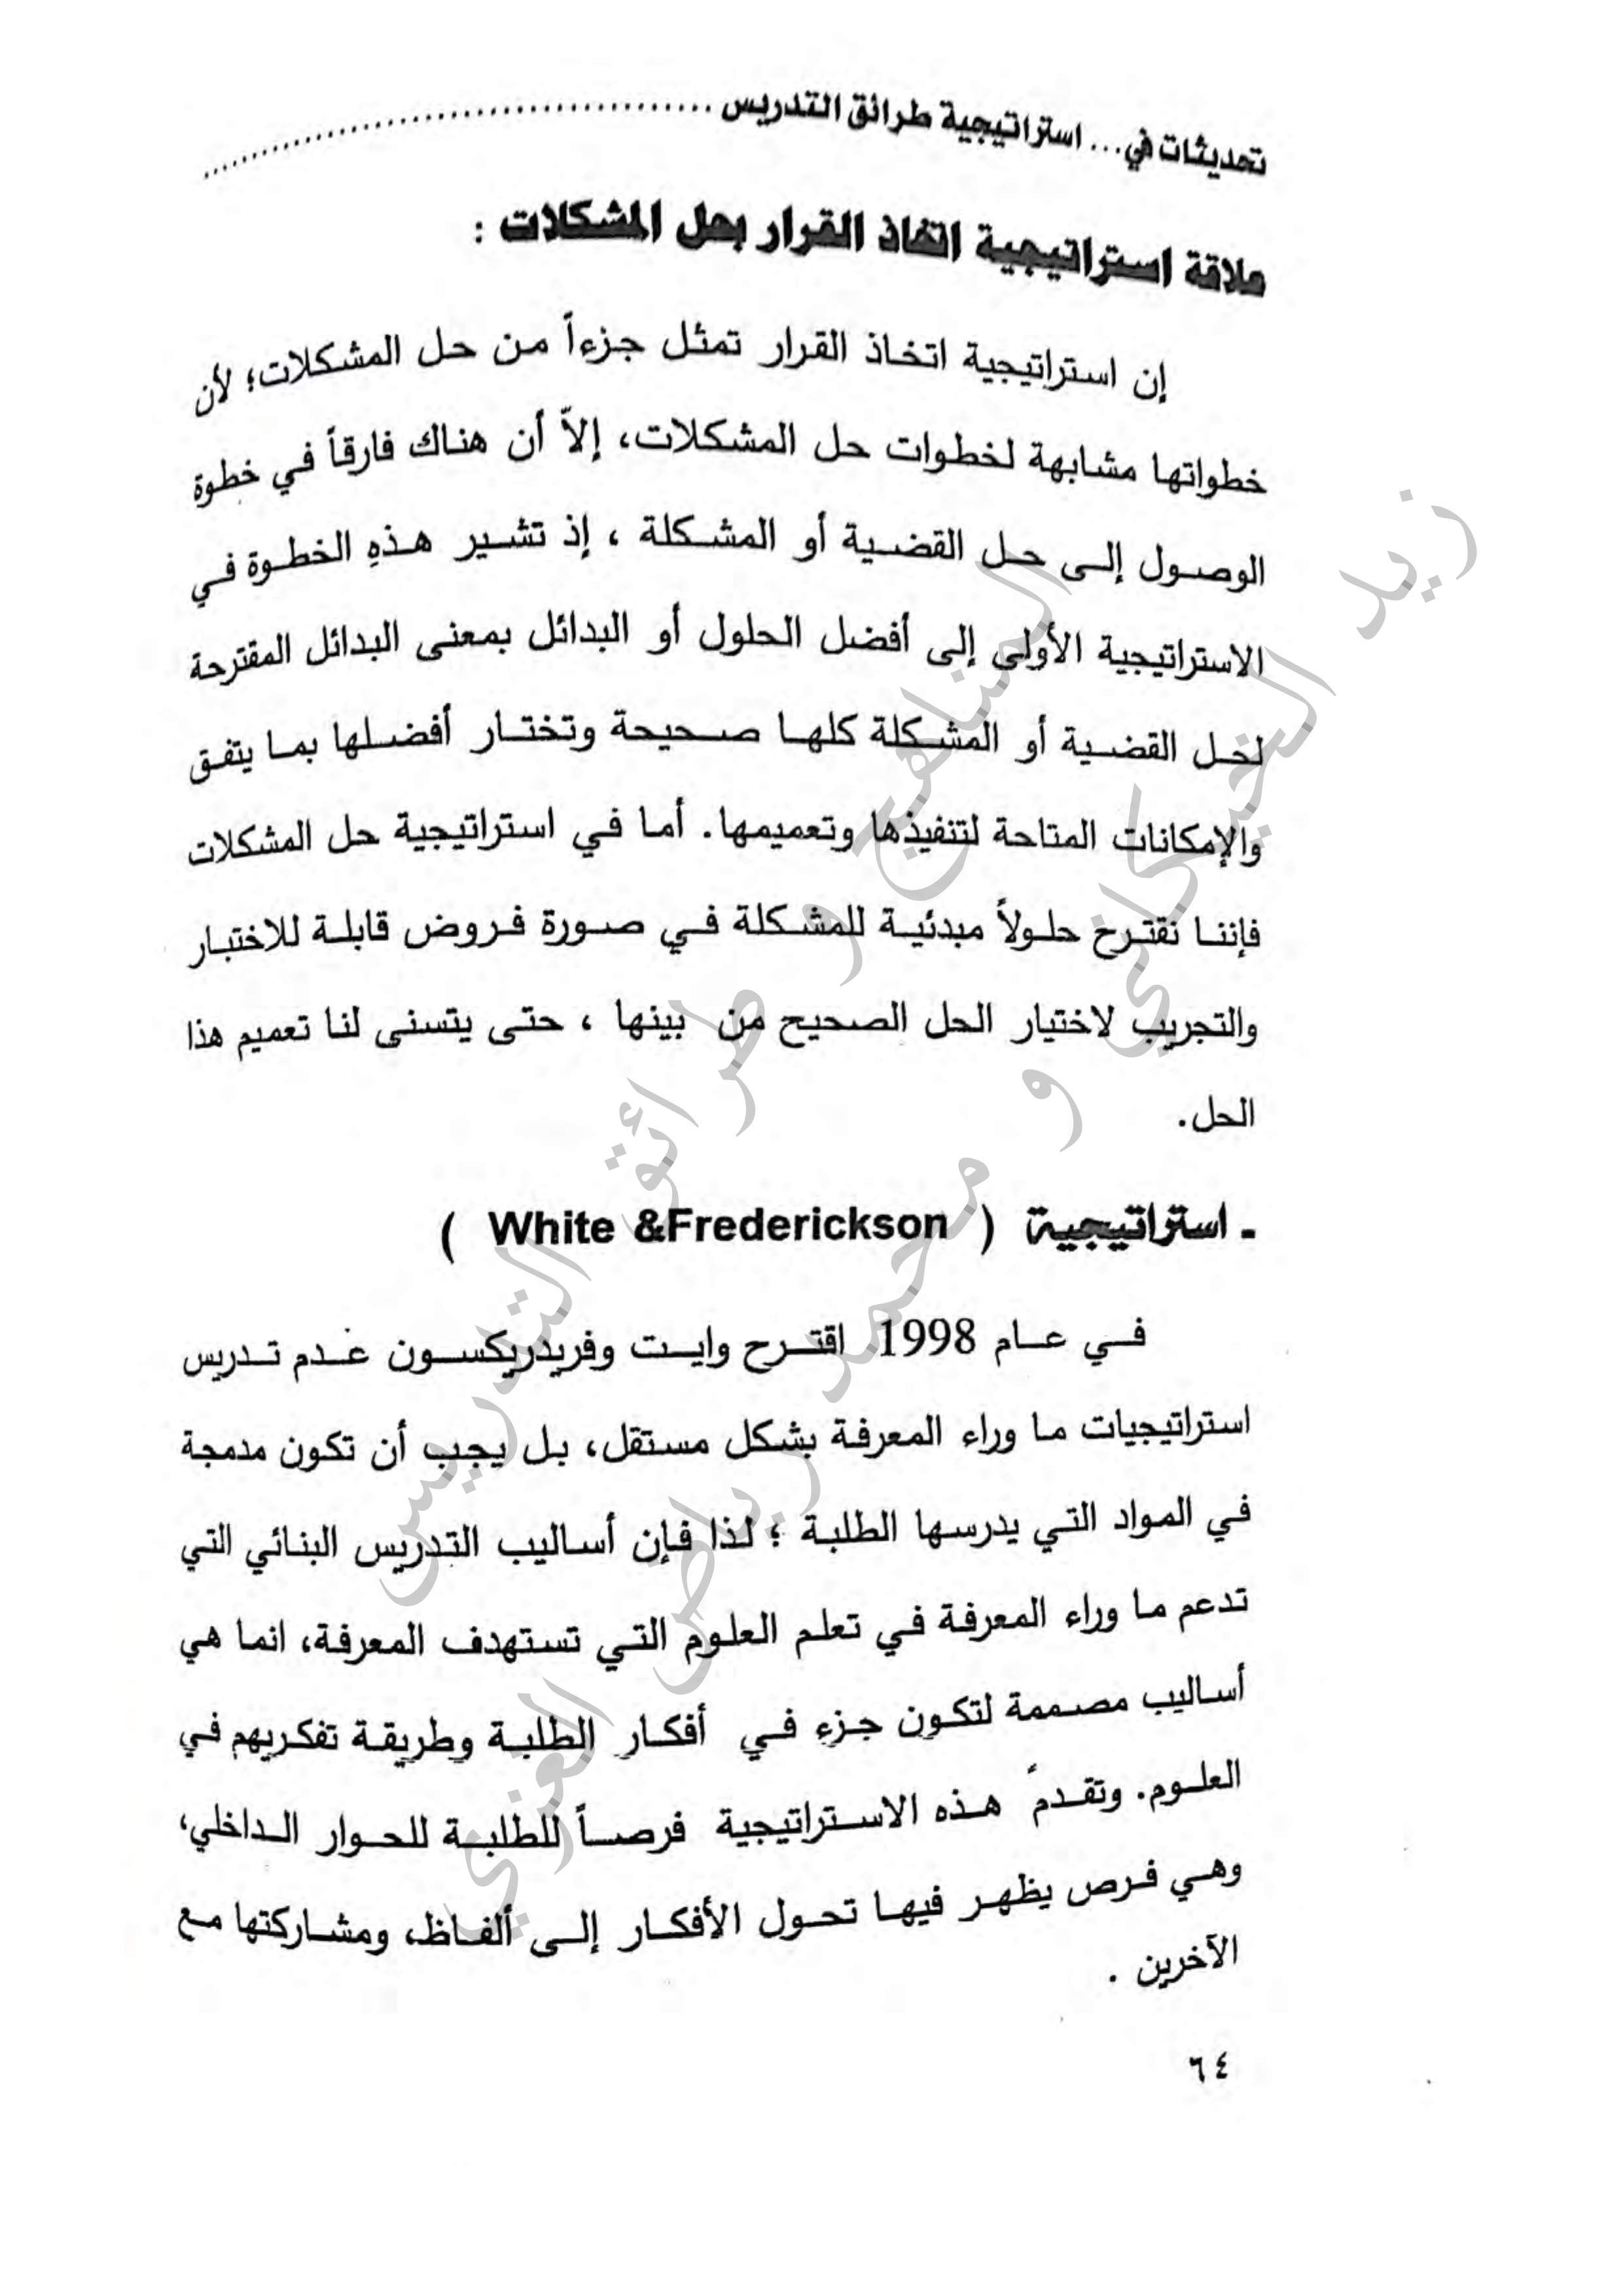 تحديثات في... استراتيجية طرائق التدريس ..........................................
علاقة استراتيجية اتخاذ القرار بحل المشكلات :
إن استراتيجية اتخاذ القرار تمثل جزءاً من حل المشكلات؛ لأن
خطواتها مشابهة لخطوات حل المشكلات، إلاّ أن هناك فارقاً في خطوة
الوصول إلى حل القضية أو المشكلة ، إذ تشير هذهِ الخطوة في
الاستراتيجية الأولى إلى أفضل الحلول أو البدائل بمعنى البدائل المقترحة
لحل القضية أو المشكلة كلها صحيحة وتختار أفضلها بما يتفق
والإمكانات المتاحة لتنفيذها وتعميمها. أما في استراتيجية حل المشكلات
فإننا نقترح حلولاً مبدئية للمشكلة في صورة فروض قابلة للاختبار
والتجريب لاختيار الحل الصحيح من بينها ، حتى يتسنى لنا تعميم هذا
الحل.
- استراتيجية ( White &Frederickson )
في عام 1998 اقترح وايت وفريدريكسون عدم تدريس
استراتيجيات ما وراء المعرفة بشكل مستقل، بل يجب أن تكون مدمجة
في المواد التي يدرسها الطلبة ؛ لذا فإن أساليب التدريس البنائي التي
تدعم ما وراء المعرفة في تعلم العلوم التي تستهدف المعرفة، انما هي
أساليب مصممة لتكون جزء في أفكار الطلبة وطريقة تفكريهم في
العلوم. وتقدم هذه الاستراتيجية فرصاً للطلبة للحوار الداخلي،
وهي فرص يظهر فيها تحول الأفكار إلى ألفاظ، ومشاركتها مع
الآخرين .
٦٤
المناهج و طرائق التدريس
زيد الخيكاني و محمد رياض الغزي